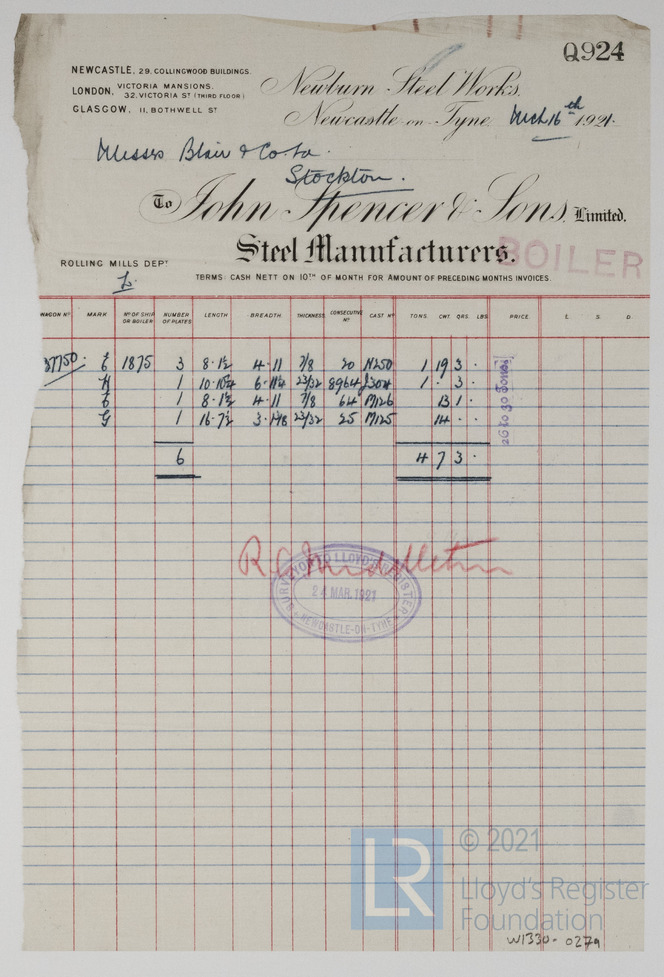 Q924
NEWCASTLE, 29, COLLINGWOOD BUILDINGS.
LONDON, VICTORIA MANSIONS. 32, VICTORIA ST (THIRD FLOOR)
GLASGOW, 11, BOTHWELL ST
Newburn Steel Works,
Newcastle-on-Tyne, Mch 16th 1921.
Messrs Blair & Co. Ld.
Stockton.
To John Spencer & Sons, Limited.
Steel Manufacturers.
BOILER
ROLLING MILLS DEPT
TERMS: CASH NETT ON 10TH OF MONTH FOR AMOUNT OF PRECEDING MONTHS INVOICES.
WAGON No. MARK No. OF SHIP OR BOILER NUMBER OF PLATES LENGTH BREADTH THICKNESS CONSECUTIVE No. CAST. No. TONS. CWT. QRS. LBS PRICE. £. S. D.
37750 1875 3 8·1½ 4·11 7/8 20 1 19 3 ·
H 1 6·11¼ 23/32 8964 1 · 3 ·
1 8·1½ 4·11 7/8 64 M126 13 1 ·
G 1 16·7½ 23/32 25 M125 14 · ·
6 4 7 3 ·
26 to 30 Tons
R. C. Middleton
SURVEYOR TO LLOYD'S REGISTER
24 MAR. 1921
NEWCASTLE-ON-TYNE
LR
© 2021
Lloyd's Register
Foundation
W1330-0279